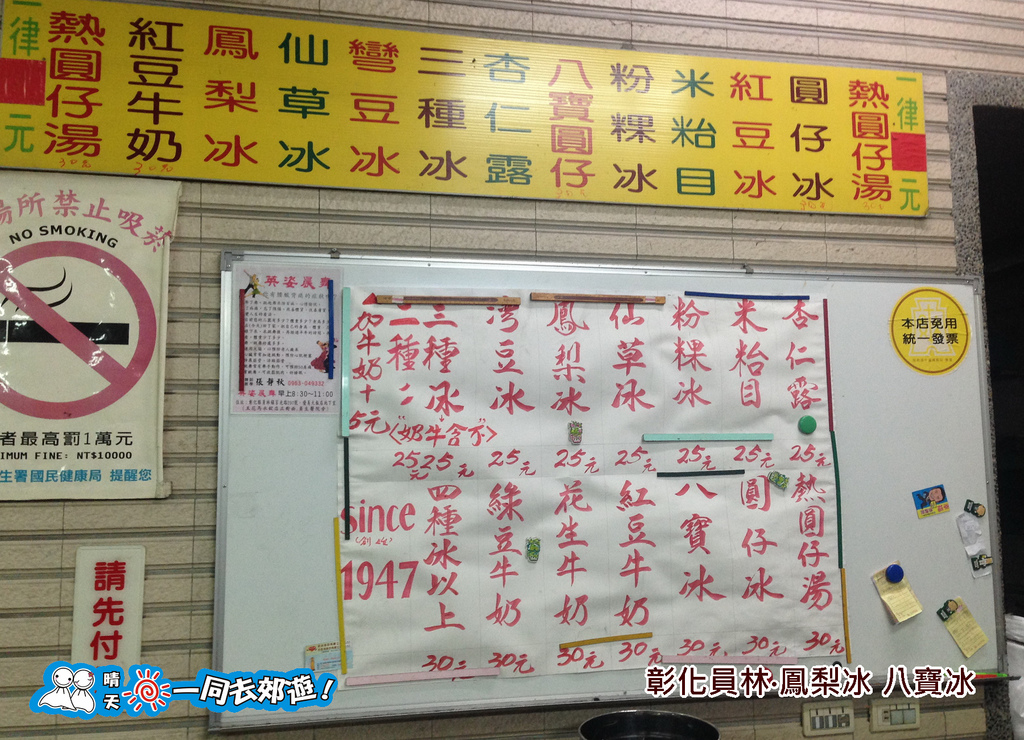 一律 元
熱圓仔湯 30元
圓仔冰
紅豆冰
米粘目
粉粿冰
八寶圓仔
杏仁露
三種冰
彎豆冰
仙草冰
鳳梨冰
紅豆牛奶 30元
熱圓仔湯 30元
一律 元
場所禁止吸菸
NO SMOKING
者最高罰1萬元
IMUM FINE: NT$10000
生署國民健康局 提醒您
請先付
張靜秋 0983-049332
早上9:30~11:00
本店免用
統一發票
杏仁露 25元
米粘目 25元
粉粿冰 25元
仙草冰 25元
鳳梨冰 25元
湾豆冰 25元
三種冰 25元
二種〃 25元
〈奶牛含不〉
加牛奶十5元
熱圓仔湯 30元
圓仔冰 30元
八寶冰 30元
紅豆牛奶 30元
花生牛奶 30元
綠豆牛奶 30元
四種冰以上 30元
since
1947
晴天 一同去郊遊!
彰化員林·鳳梨冰 八寶冰